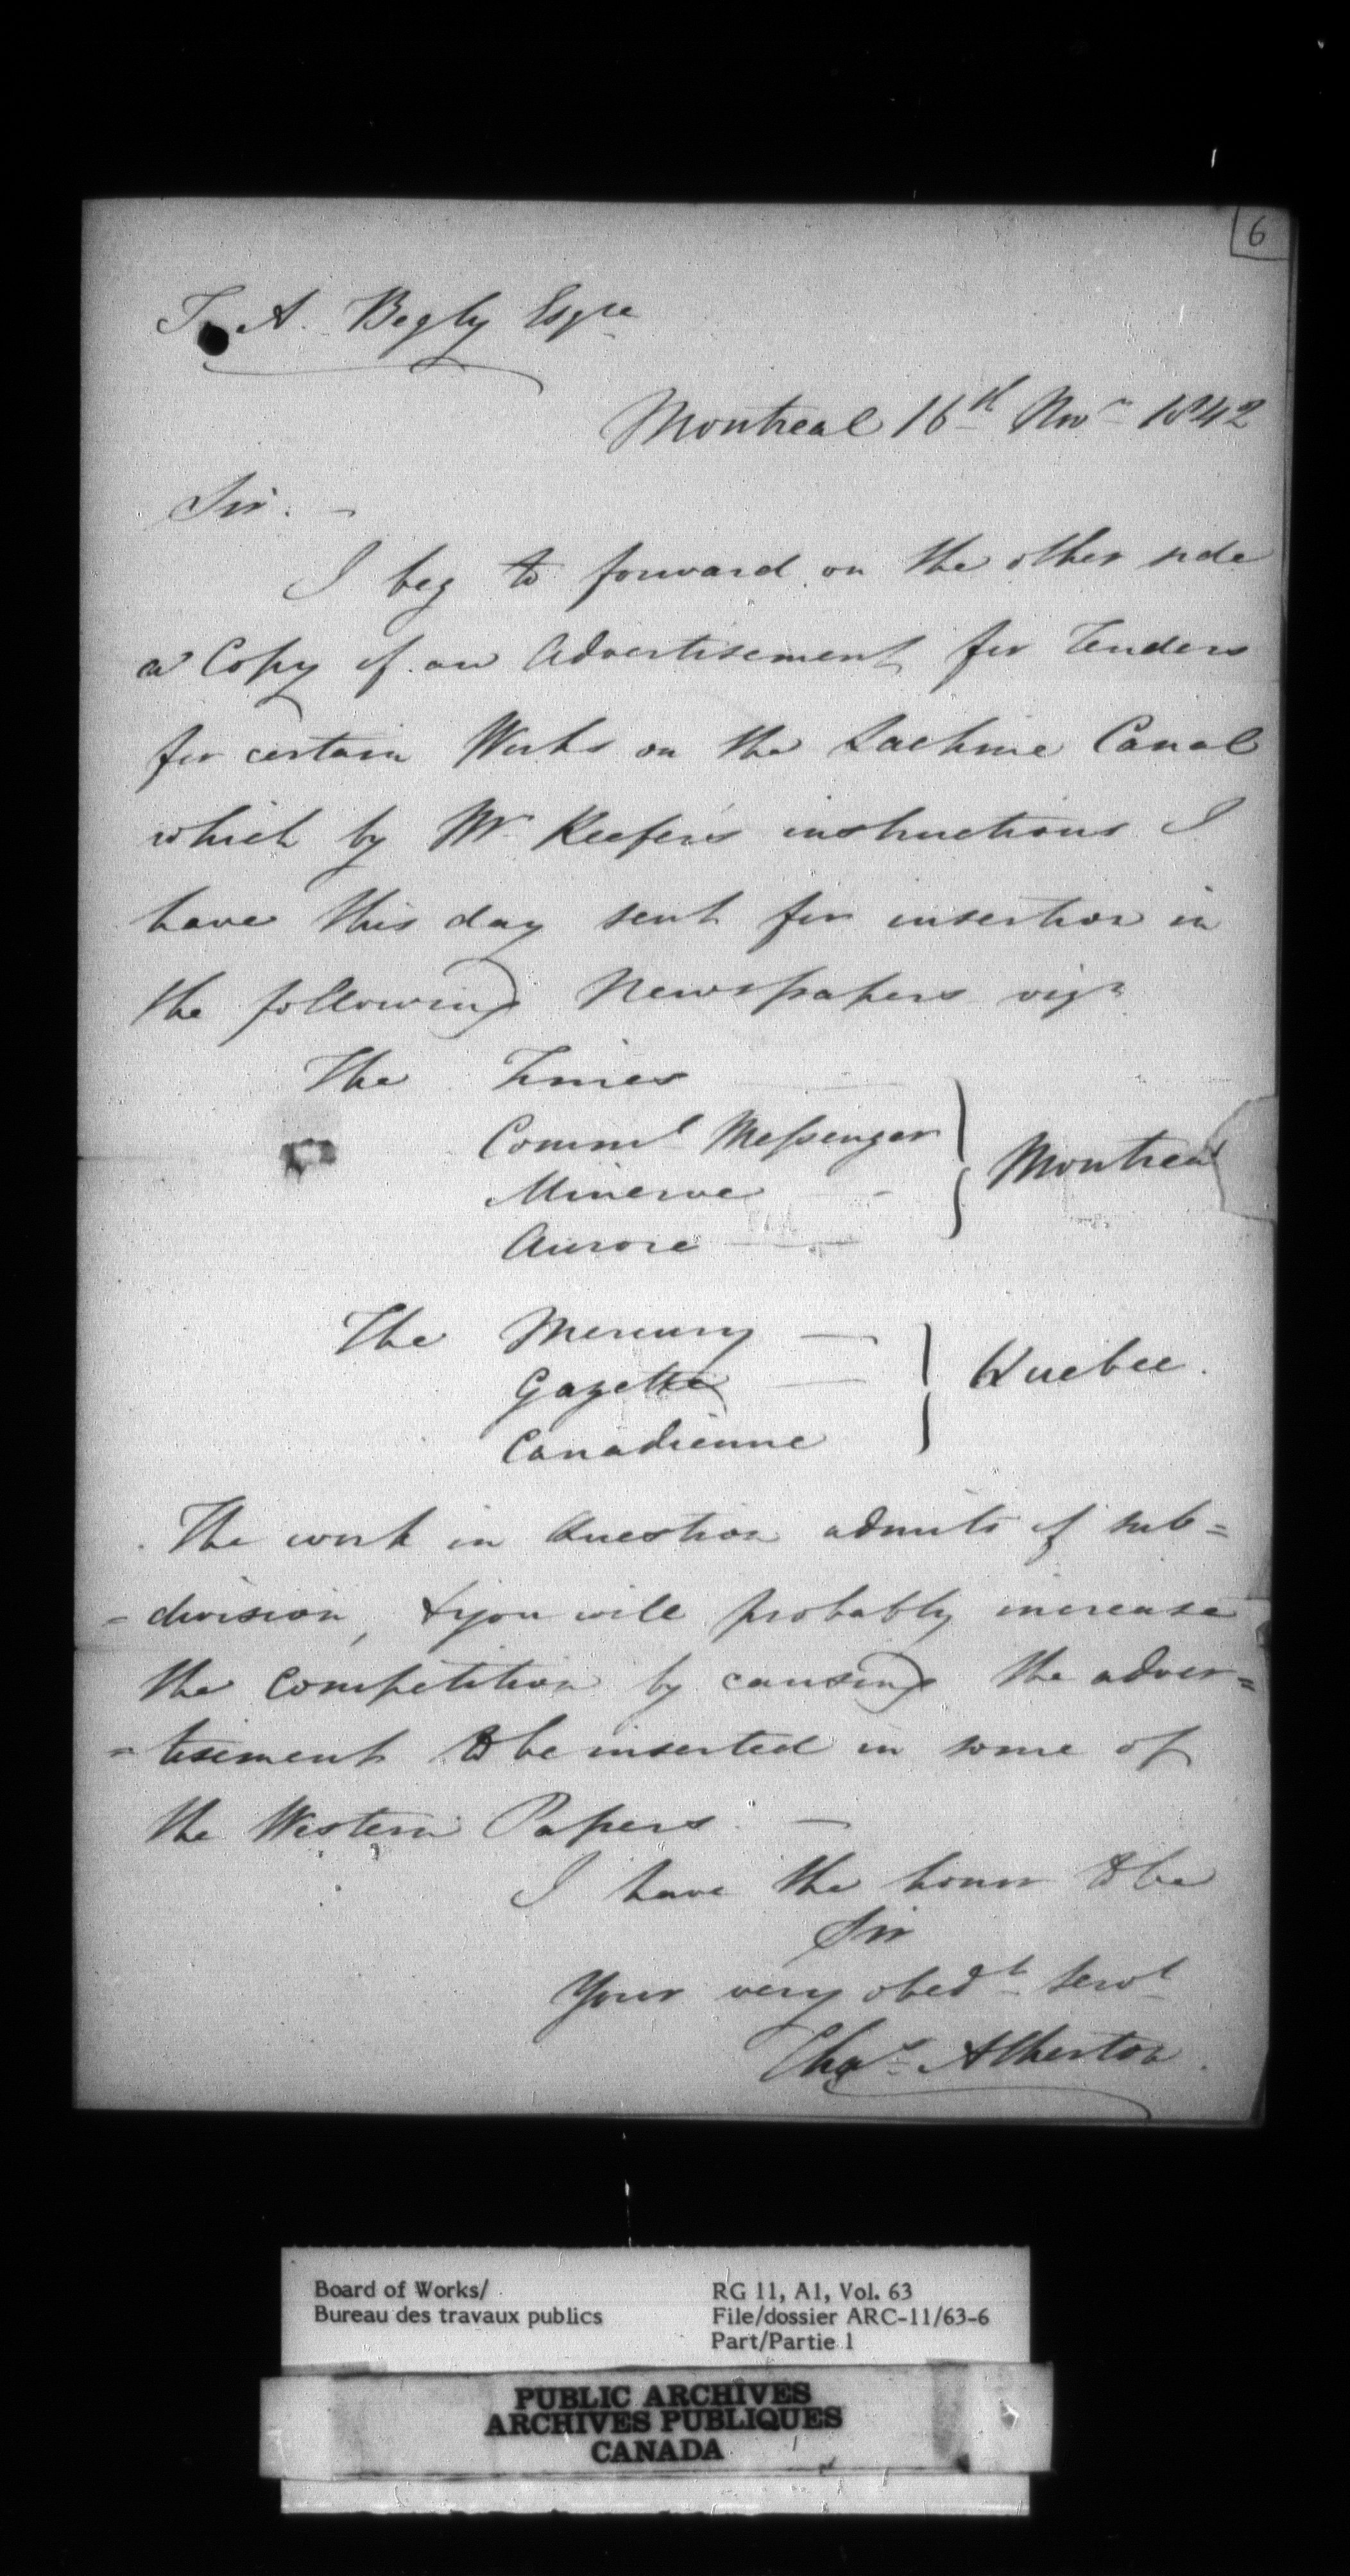 6
T. A. Begly Esqre
Montreal 16th Novr 1842
Sir. -
I beg to forward on the other side
a Copy of an Advertisement for Tenders
for certain Works on the Lachine Canal
which by Mr Keefer's instructions I
have this day sent for insertion in
the following Newspapers vizt
The Times
Comml Messenger
Minerve
Aurore
Montreal
The Mercury
Gazette
Canadienne
Quebec.
The work in Question admits of sub=
=division, & you will probably increase
the Competition by causing the adver=
=tisement to be inserted in some of
the Western Papers. -
I have the honor to be
Sir
Your very obedt servt
Chas Atherton
Board of Works/
Bureau des travaux publics
RG 11, A1, Vol. 63
File/dossier ARC-11/63-6
Part/Partie 1
PUBLIC ARCHIVES
ARCHIVES PUBLIQUES
CANADA